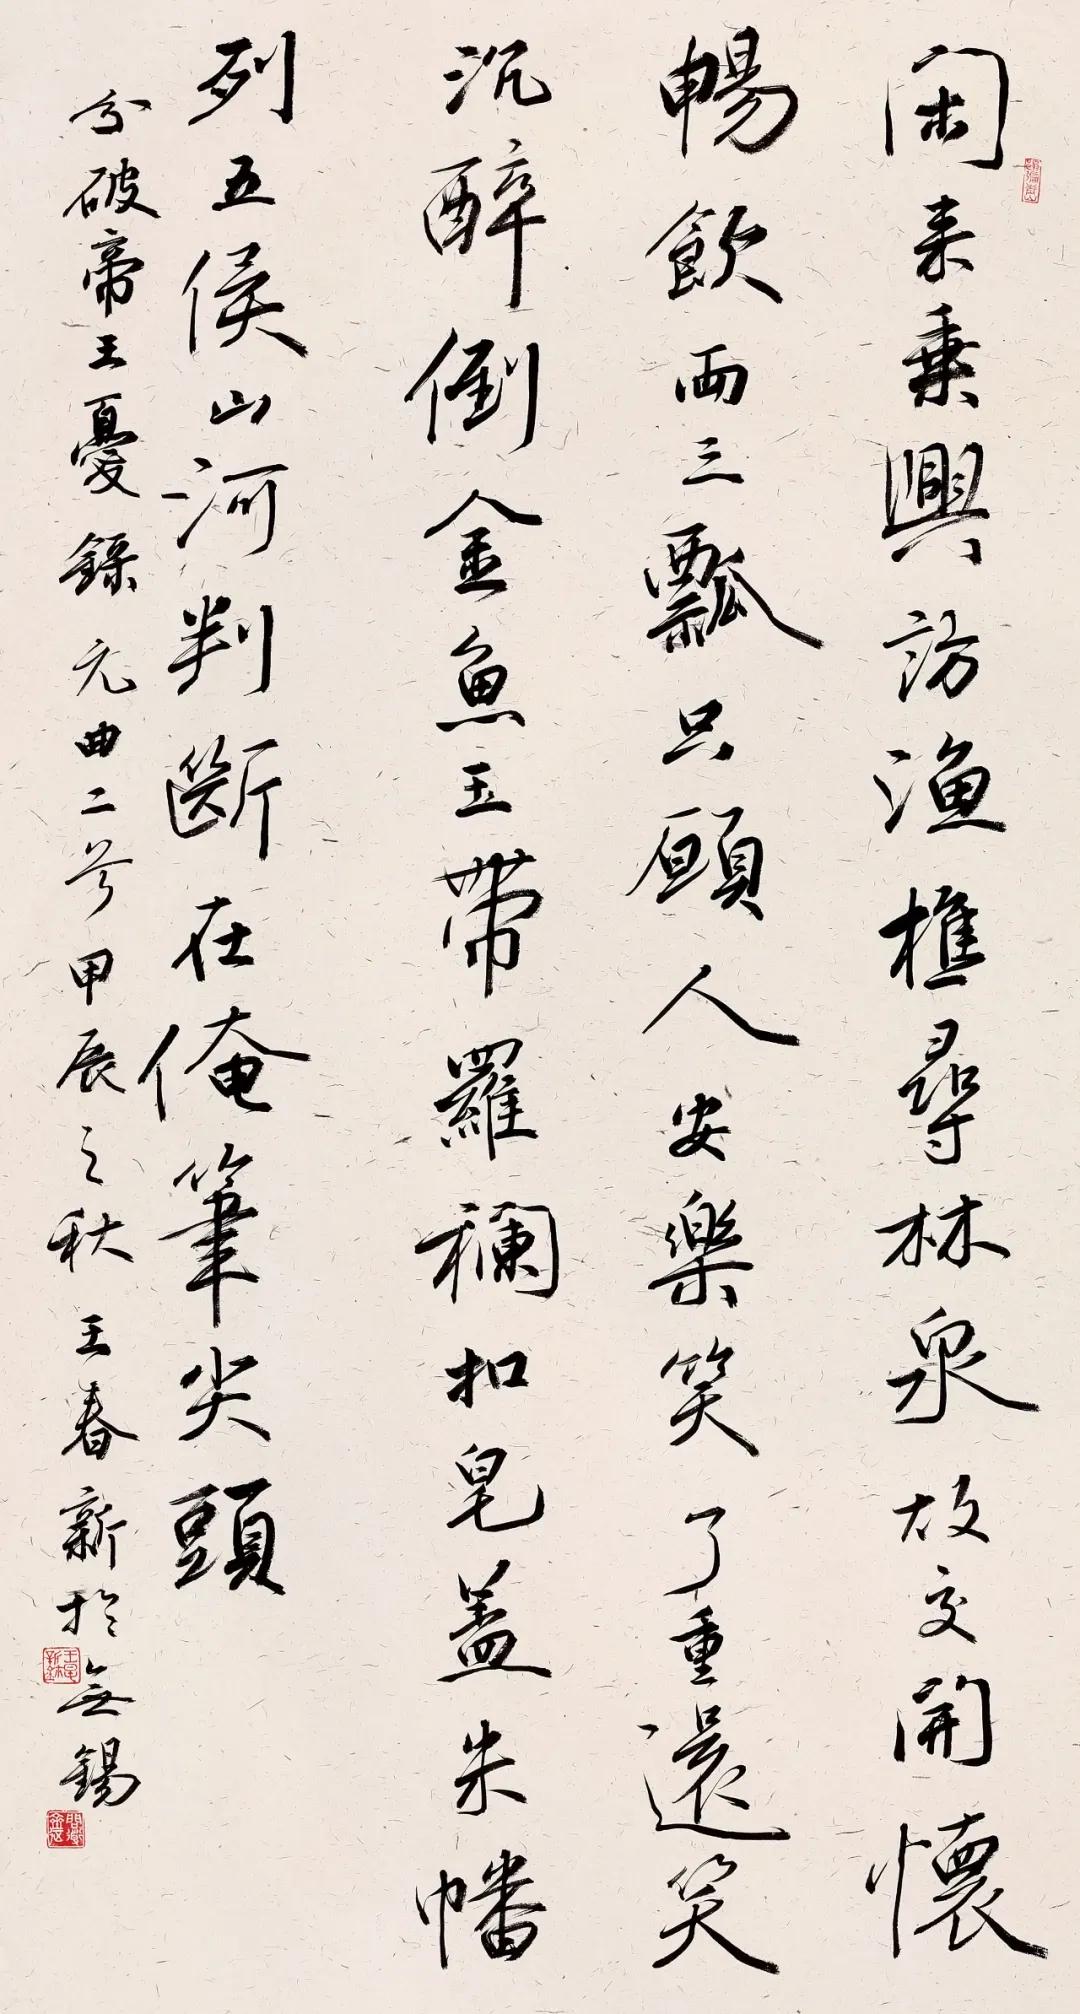 閑来乗興訪漁樵尋林泉故交開懷
暢飲両三瓢只願人安樂笑了重還笑
沉醉倒金魚玉帶羅襴扣皂蓋朱幡
列五侯山河判斷在俺筆尖頭
分破帝王憂錄元曲二首甲辰之秋王春新於無錫